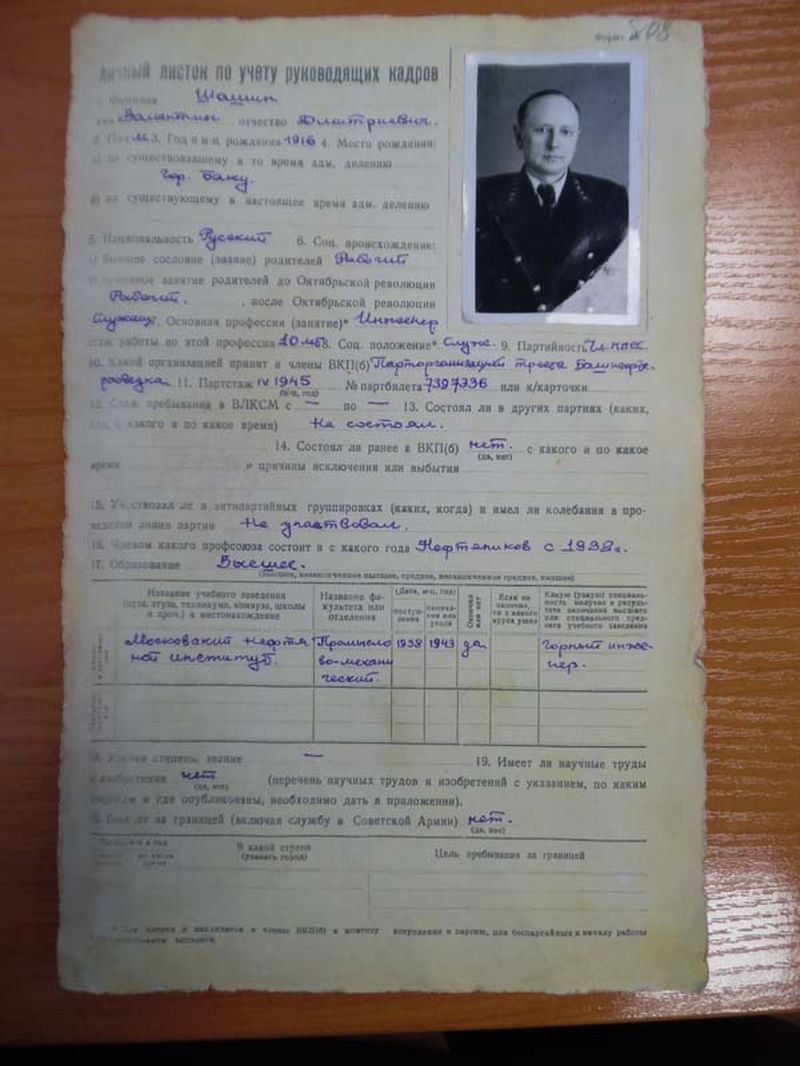 Форма № 208
личный листок по учету руководящих кадров
1. Фамилия Шашин
имя Валентин отчество Дмитриевич.
2. Пол М 3. Год и м-ц рождения 1916 4. Место рождения:
а) по существовавшему в то время адм. делению
гор. Баку.
б) по существующему в настоящее время адм. делению
5. Национальность Русский 6. Соц. происхождение:
а) бывшее сословие (звание) родителей Рабочий
б) основное занятие родителей до Октябрьской революции
Рабочий. , после Октябрьской революции
Служащ. 7. Основная профессия (занятие)* Инженер
стаж работы по этой профессии 10 8. Соц. положение* Служ. 9. Партийность
10. Какой организацией принят в члены ВКП(б) Парторганизацией треста Башнефте-
разведка. 11. Партстаж IV 1945 № партбилета 7397336 или к/карточки
(м-ц, год)
12. Стаж пребывания в ВЛКСМ с — по — 13. Состоял ли в других партиях (каких,
где, с какого и по какое время) Не состоял.
14. Состоял ли ранее в ВКП(б) нет. с какого и по какое
(да, нет)
время и причины исключения или выбытия
15. Участвовал ли в антипартийных группировках (каких, когда) и имел ли колебания в про-
ведении линии партии Не участвовал.
16. Членом какого профсоюза состоит и с какого года Нефтяников с 1938г.
17. Образование Высшее.
(высшее, незаконченное высшее, среднее, незаконченное среднее, низшее)
Название учебного заведения (вуза, втуза, техникума, комвуза, школы и проч.) и местонахождение
Название факультета или отделения
(Дата, м-ц, год)
поступления
окончания или ухода
Окончил или нет
Если не окончил, то с какого курса ушел
Какую (узкую) специальность получил в результате окончания высшего или специального среднего учебного заведения
Московский Нефтяной институт. Промыслово-механический. 1938 1943 да Горный инженер.
18. Ученая степень, звание — 19. Имеет ли научные труды
и изобретения нет (перечень научных трудов и изобретений с указанием, по каким
(да, нет)
вопросам и где опубликованы, необходимо дать в приложении).
20. Был ли за границей (включая службу в Советской Армии) нет.
(да, нет)
В какой стране
(указать город)
Цель пребывания за границей